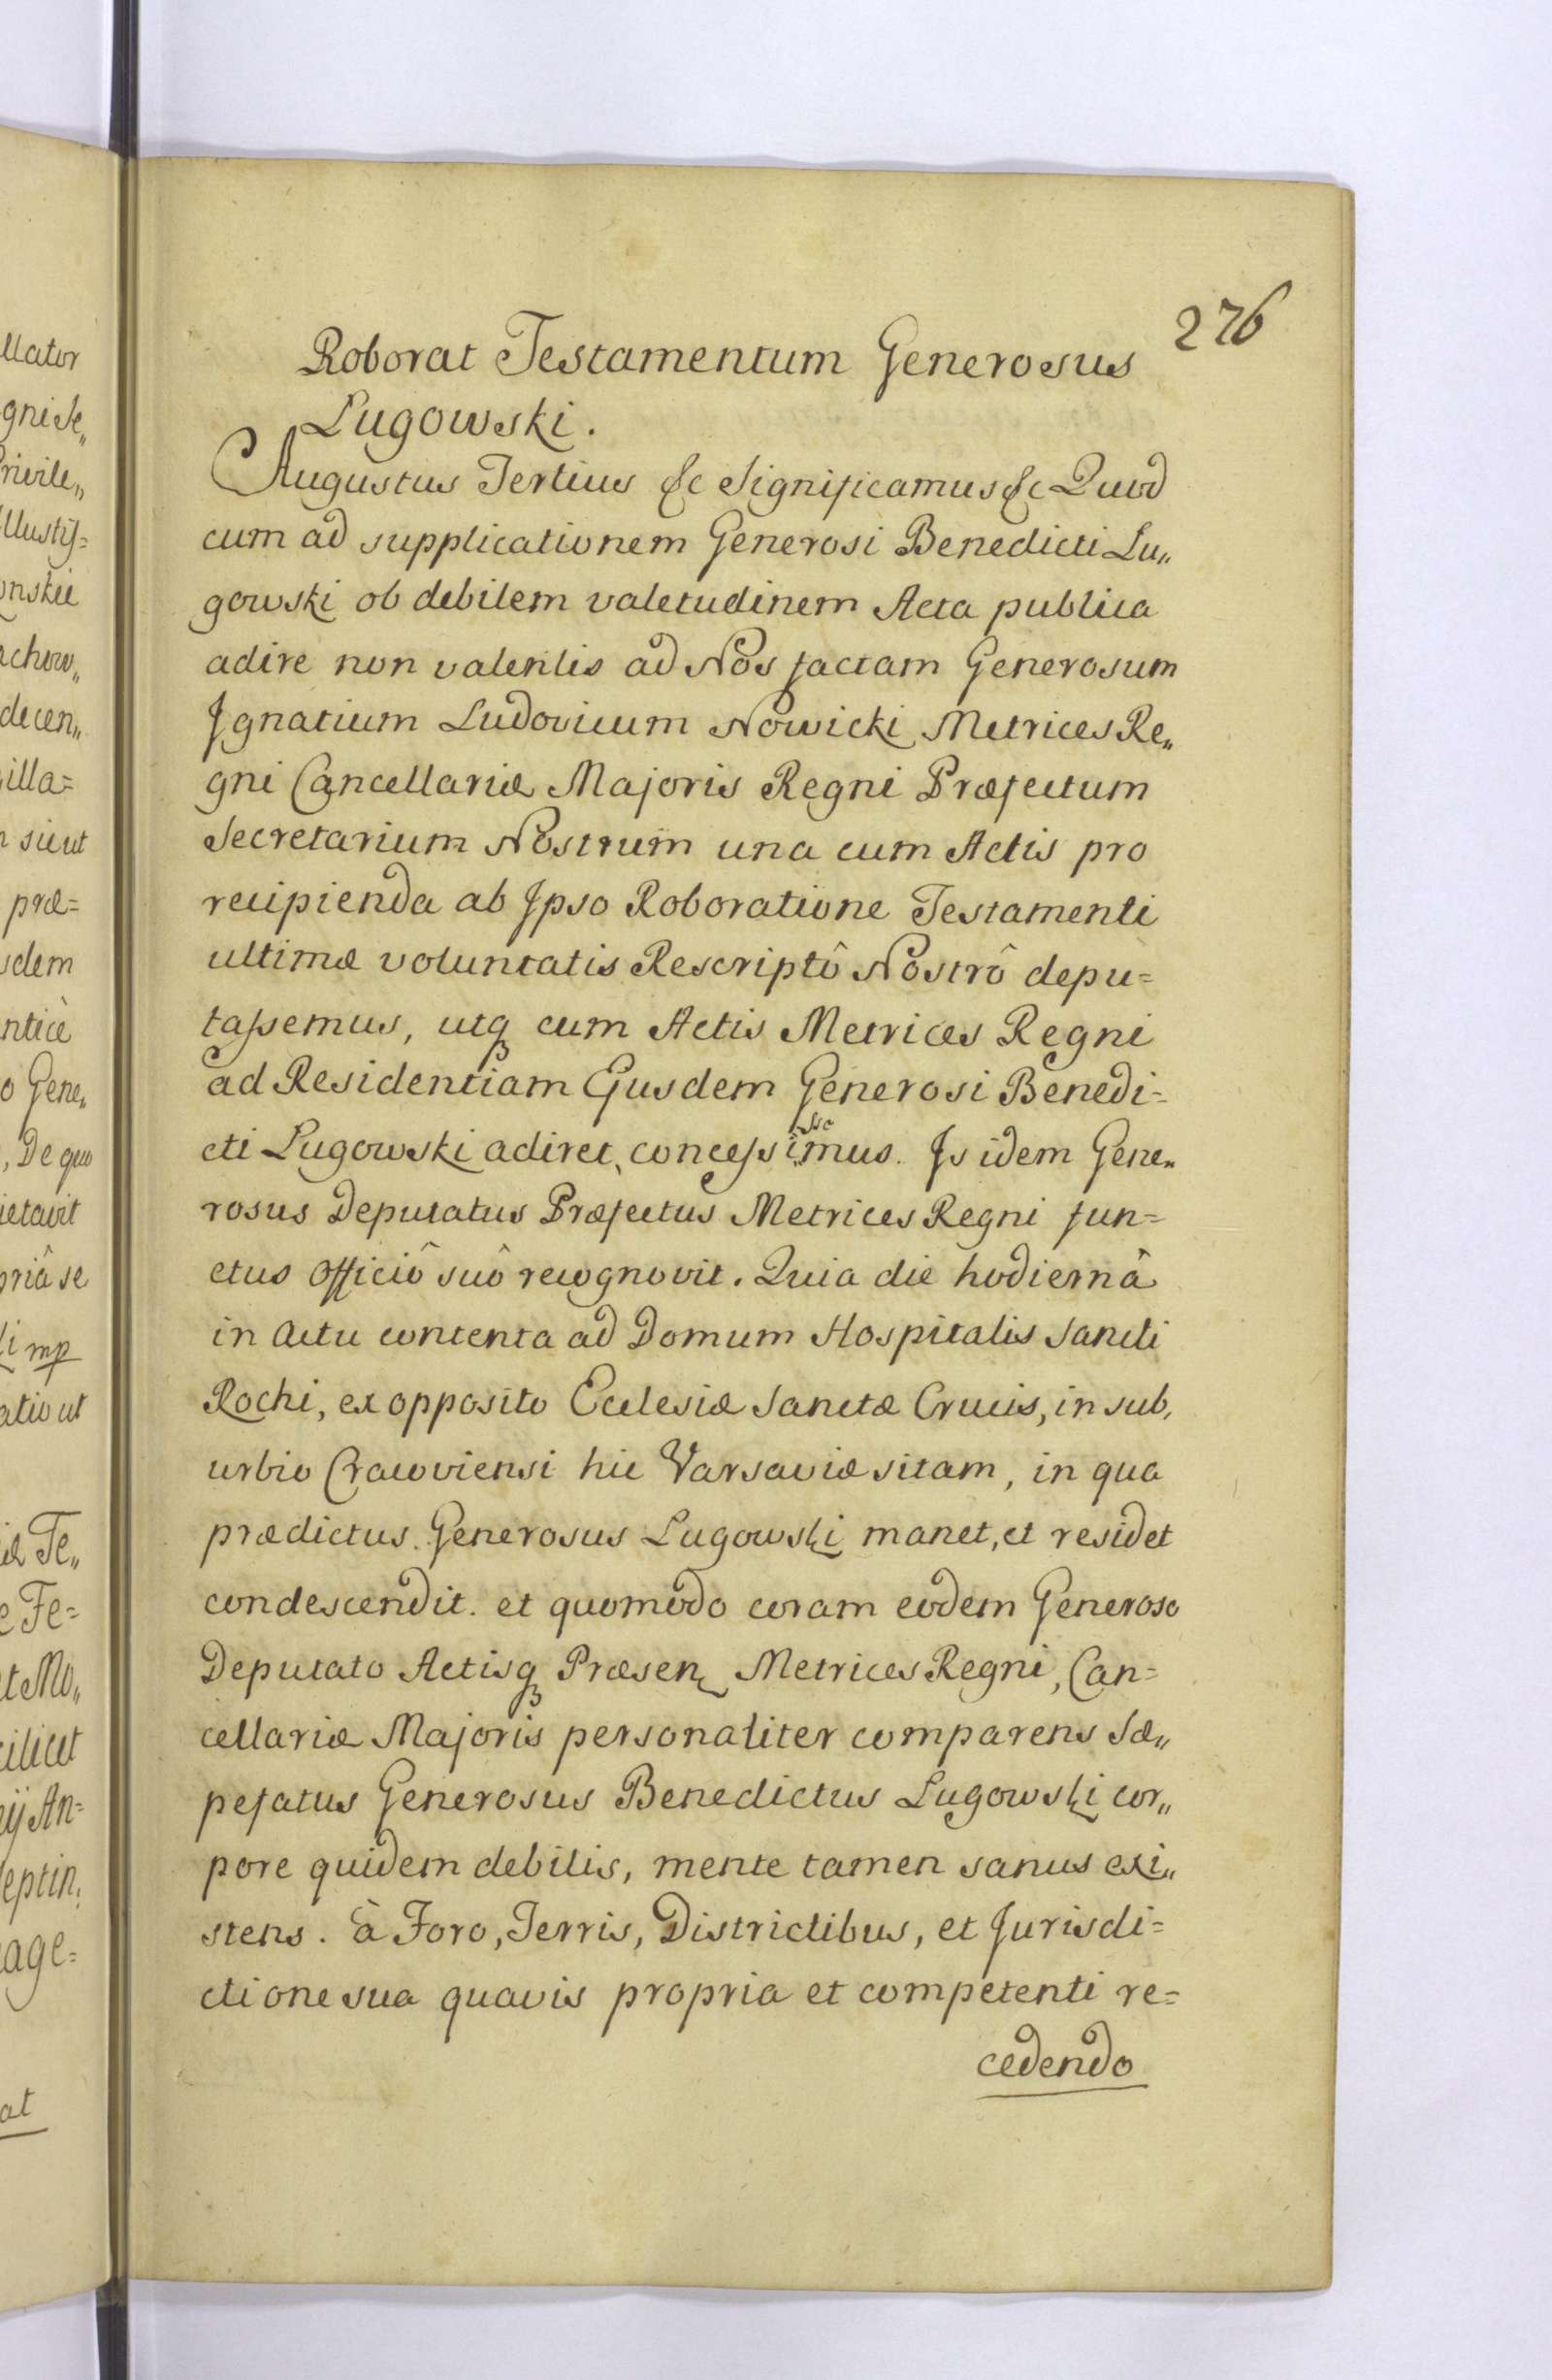 276
Roborat Testamentum Generosus
Lugowski.
Augustus Tertius &c Significamus &c Quod
cum ad supplicationem Generosi Benedicti Lu„
gowski ob debilem valetudinem Acta publica
adire non valentis ad Nos factam Generosum
Ignatium Ludovicum Nowicki Metrices Re„
gni Cancellariæ Majoris Regni Præfectum
Secretarium Nostrum una cum Actis pro
recipienda ab Ipso Roboratione Testamenti
ultimæ voluntatis Rescriptô Nostrô depu=
tassemus, utq cum Actis Metrices Regni
ad Residentiam Ejusdem Generosi Benedi=
cti Lugowski adiret, concessimus. Is idem Gene„
rosus Deputatus Præfectus Metrices Regni fun=
ctus officiô suô recognovit. Quia die hodiernâ
in actu contenta ad Domum Hospitalis Sancti
Rochi, ex opposito Ecclesiæ Sanctæ Crucis, in sub,
urbio Cracoviensi hic Varsaviæ sitam, in qua
prædictus Generosus Lugowski manet, et residet
condescendit. et quomodo coram eodem Generoso
Deputato Actisq Præsen Metrices Regni, Can=
cellariæ Majoris personaliter comparens Sæ„
pefatus Generosus Benedictus Lugowski cor„
pore quidem debilis, mente tamen sanus exi„
stens. à Foro, Terris, Districtibus, et Jurisdi=
ctione sua quavis propria et competenti re=
cedendo
llator
gni Se„
Privile„
Illustÿ=
onskie
achow„
decen„
illa=
sicut
præ=
sdem
nticè
o Gene„
, De quo
ietavit
priâ se
ki mp
atio ut
iæ Te„
e Fe=
et Mo„
cilicet
ij An=
eptin,
age=
at